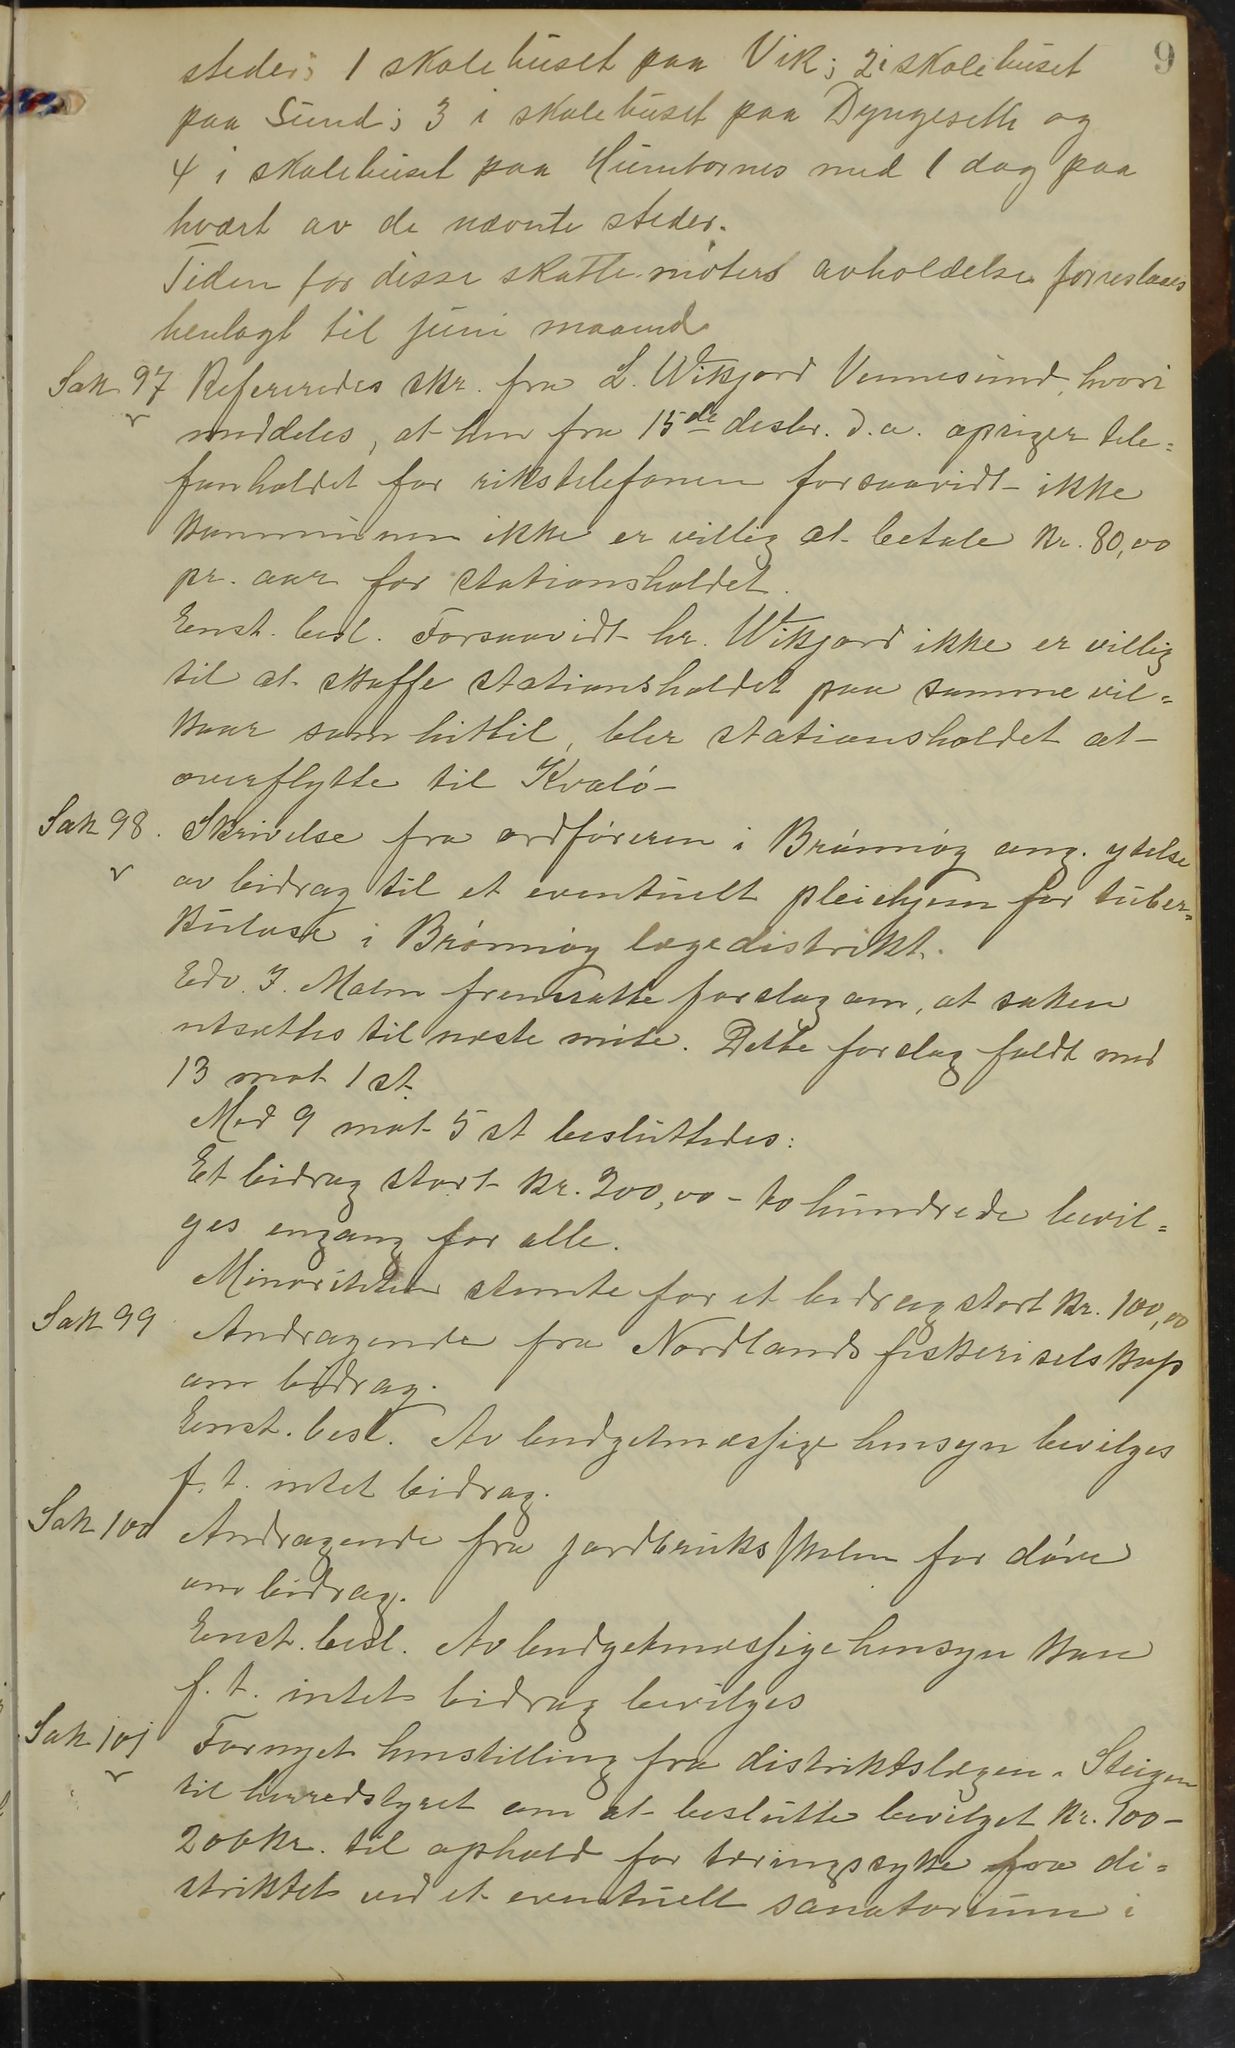 9
steder; 1 skolehuset paa Vik; 2 i skolehuset
paa Sund; 3 i skolehuset paa Dyngeseth og
4 i skolehuset paa Humbornes med 1 dag paa
hvært av de nævnte steder.
Tiden for disse skattemøters avholdelse foreslaaes
henlagt til juni maaned
Sak 97 Refereredes skr. fra L. Wikjord Vennesund, hvori
meddeles, at han fra 15de desbr. d.a. opsiger tele=
fonholdet for rikstelefonen forsaavidt ikke
kommunen ikke er villig at betale kr. 80,00
pr. aar for stationsholdet.
Enst. besl. Forsaavidt hr. Wikjord ikke er villig
til at skaffe stationsholdet paa samme vil=
kaar som hittil, blir stationsholdet at
overflytte til Kvalø-
Sak 98. Skrivelse fra ordføreren i Brønnøy ang. ytelse
av bidrag til et eventuelt pleiehjem for tuber=
kuløse i Brønnøy lægedistrikt.
Edv. J. Malm fremsatte forslag om, at saken
utsættes til næste møte. Dette forslag faldt med
13 mot 1 st.
Med 9 mot 5 st besluttedes:
Et bidrag stort kr. 200,00 - to hundrede bevil=
ges engang for alle.
Minoriteten stemte for et bidrag stort kr. 100,00
Sak 99 Andragende fra Nordlands fiskeriselskap
om bidrag.
Enst. besl. Av budgetmæssige hensyn bevilges
f. t. intet bidrag.
Sak 100 Andragende fra jordbruksskolen for døve
om bidrag.
Enst. besl. Av budgetmæssige hensyn kan
f. t. intet bidrag bevilges
Sak 101 Fornyet henstilling fra distriktslægen i Steigen
til herredstyret om at beslutte bevilget kr. 100-
200 kr. til ophold for tæringssyke fra di=
striktet ved et eventuelt sanatorium i